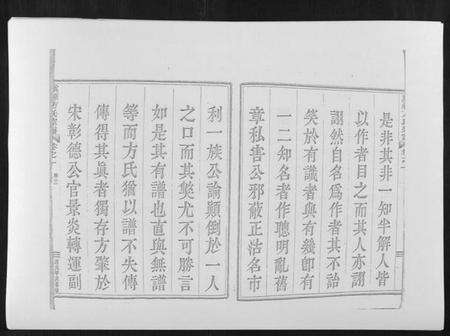 是非其非一知半解人皆
以作者目之而其人亦謝
謝然自名爲作者其不詒
笑於有識者與有幾卽有
一二知名者作聰明亂舊
章私害公邪蔽正沽名市
利一族公論顛倒於一人
之口而其獘尤不可勝言
如是其有譜也直與無譜
等而方氏猶以譜不失傳
傳得其眞者獨存方肇於
宋彰德公官景炎轉運副